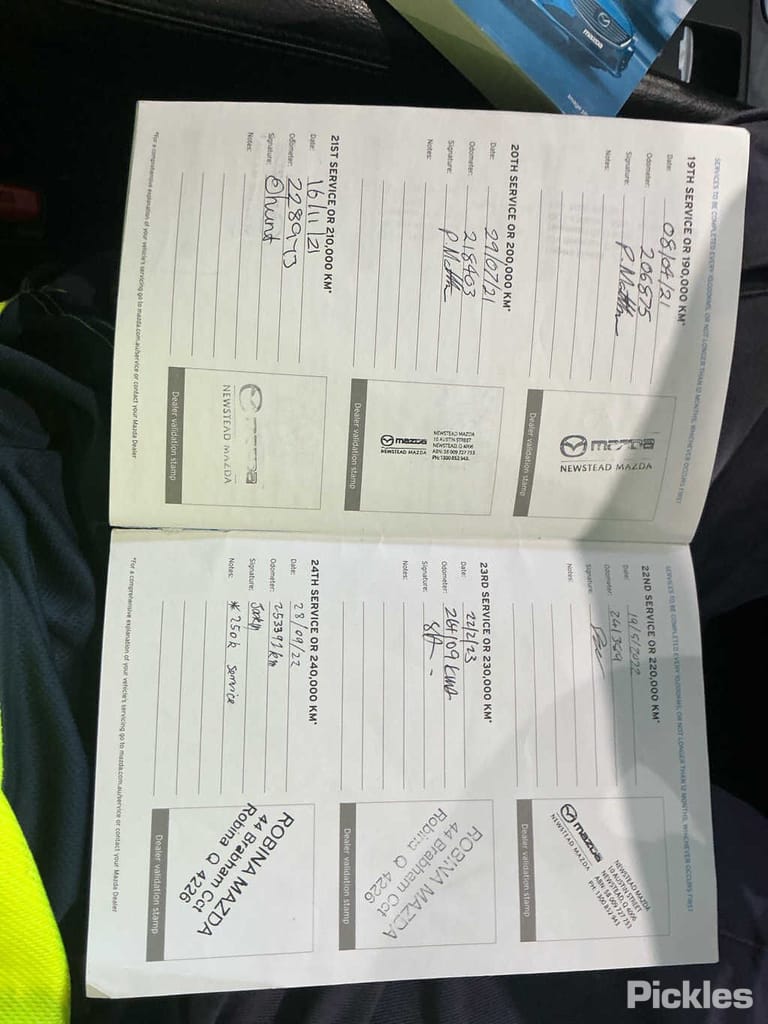 mazda
SERVICES TO BE COMPLETED EVERY 10,000KMS, OR NOT LONGER THAN 12 MONTHS, WHICHEVER OCCURS FIRST
19TH SERVICE OR 190,000 KM*
Date: 08/04/21
Odometer: 206875
Signature:
Notes:
mazda
NEWSTEAD MAZDA
Dealer validation stamp
20TH SERVICE OR 200,000 KM*
Date: 29/07/21
Odometer: 218403
Signature:
Notes:
mazda
NEWSTEAD MAZDA
NEWSTEAD MAZDA
10 AUSTIN STREET
NEWSTEAD, Q 4006
ABN: 58 009 727 753
PH: 1300 852 943
Dealer validation stamp
21ST SERVICE OR 210,000 KM*
Date: 16/11/21
Odometer: 228943
Signature:
Notes:
mazda
NEWSTEAD MAZDA
Dealer validation stamp
*For a comprehensive explanation of your vehicle's servicing go to mazda.com.au/service or contact your Mazda Dealer
SERVICES TO BE COMPLETED EVERY 10,000KMS, OR NOT LONGER THAN 12 MONTHS, WHICHEVER OCCURS FIRST
22ND SERVICE OR 220,000 KM*
Date: 19/5/2022
Odometer:
Signature:
Notes:
mazda
NEWSTEAD MAZDA
NEWSTEAD MAZDA
10 AUSTIN STREET
NEWSTEAD, Q 4006
ABN: 58 009 727 753
PH: 1300 852 943
Dealer validation stamp
23RD SERVICE OR 230,000 KM*
Date: 22/2/23
Odometer: 264109 kms
Signature:
Notes:
ROBINA MAZDA
44 Brabham Cct
Robina Q 4226
Dealer validation stamp
24TH SERVICE OR 240,000 KM*
Date: 28/09/22
Odometer: 253391 km
Signature:
Notes: * 250k service
ROBINA MAZDA
44 Brabham Cct
Robina Q 4226
Dealer validation stamp
*For a comprehensive explanation of your vehicle's servicing go to mazda.com.au/service or contact your Mazda Dealer
Pickles